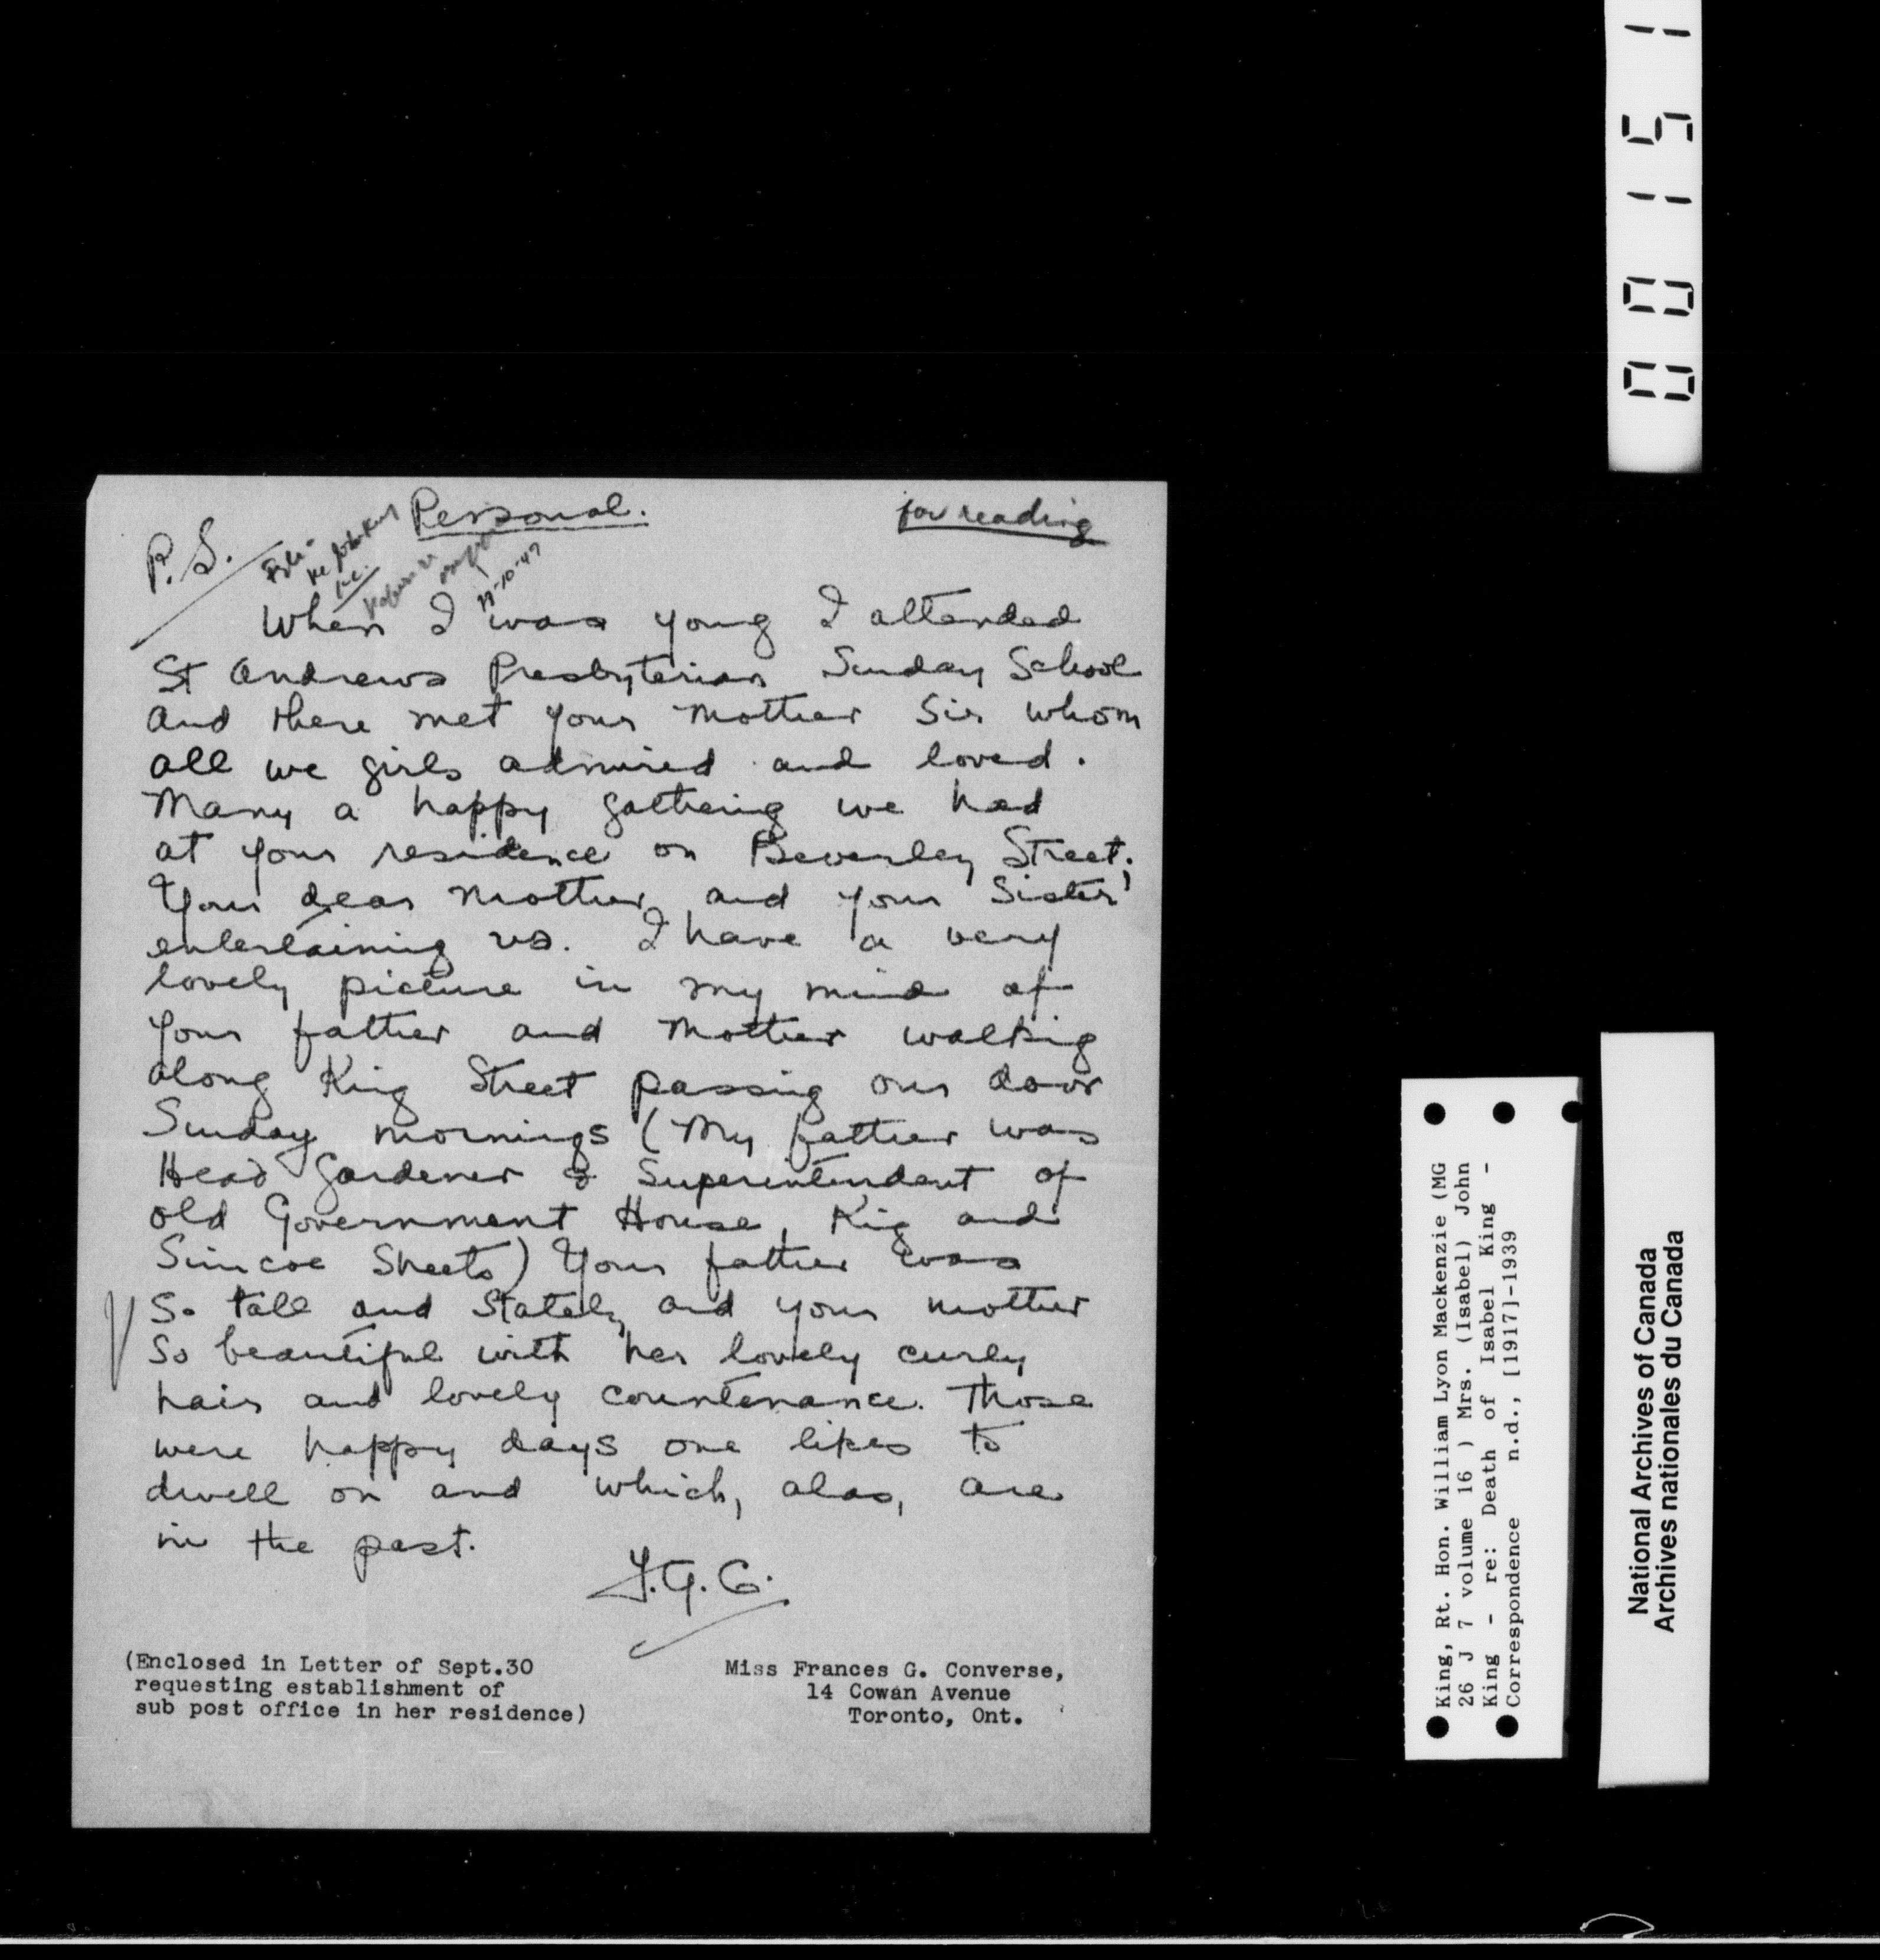 Personal.
for reading
P.S.
File -
11-10-47
When I was young I attended
St Andrews Presbyterian Sunday School
and there met your mother Sir whom
all we girls admired and loved.
Many a happy gathering we had
at your residence on Beverley Street.
Your dear mother and your Sister
entertaining us. I have a very
lovely picture in my mind of
your father and mother walking
along King Street passing our door
Sunday mornings (My father was
Head Gardener & Superintendent of
old Government House, King and
Simcoe Streets) Your father was
so tall and stately and your mother
so beautiful with her lovely curly
hair and lovely countenance. Those
were happy days one likes to
dwell on and which, alas, are
in the past.
F.G.C.
(Enclosed in Letter of Sept.30
requesting establishment of
sub post office in her residence)
Miss Frances G. Converse,
14 Cowan Avenue
Toronto, Ont.
00151
King, Rt. Hon. William Lyon Mackenzie (MG
26 J 7 volume 16 ) Mrs. (Isabel) John
King - re: Death of Isabel King -
Correspondence n.d., [1917]-1939
National Archives of Canada
Archives nationales du Canada